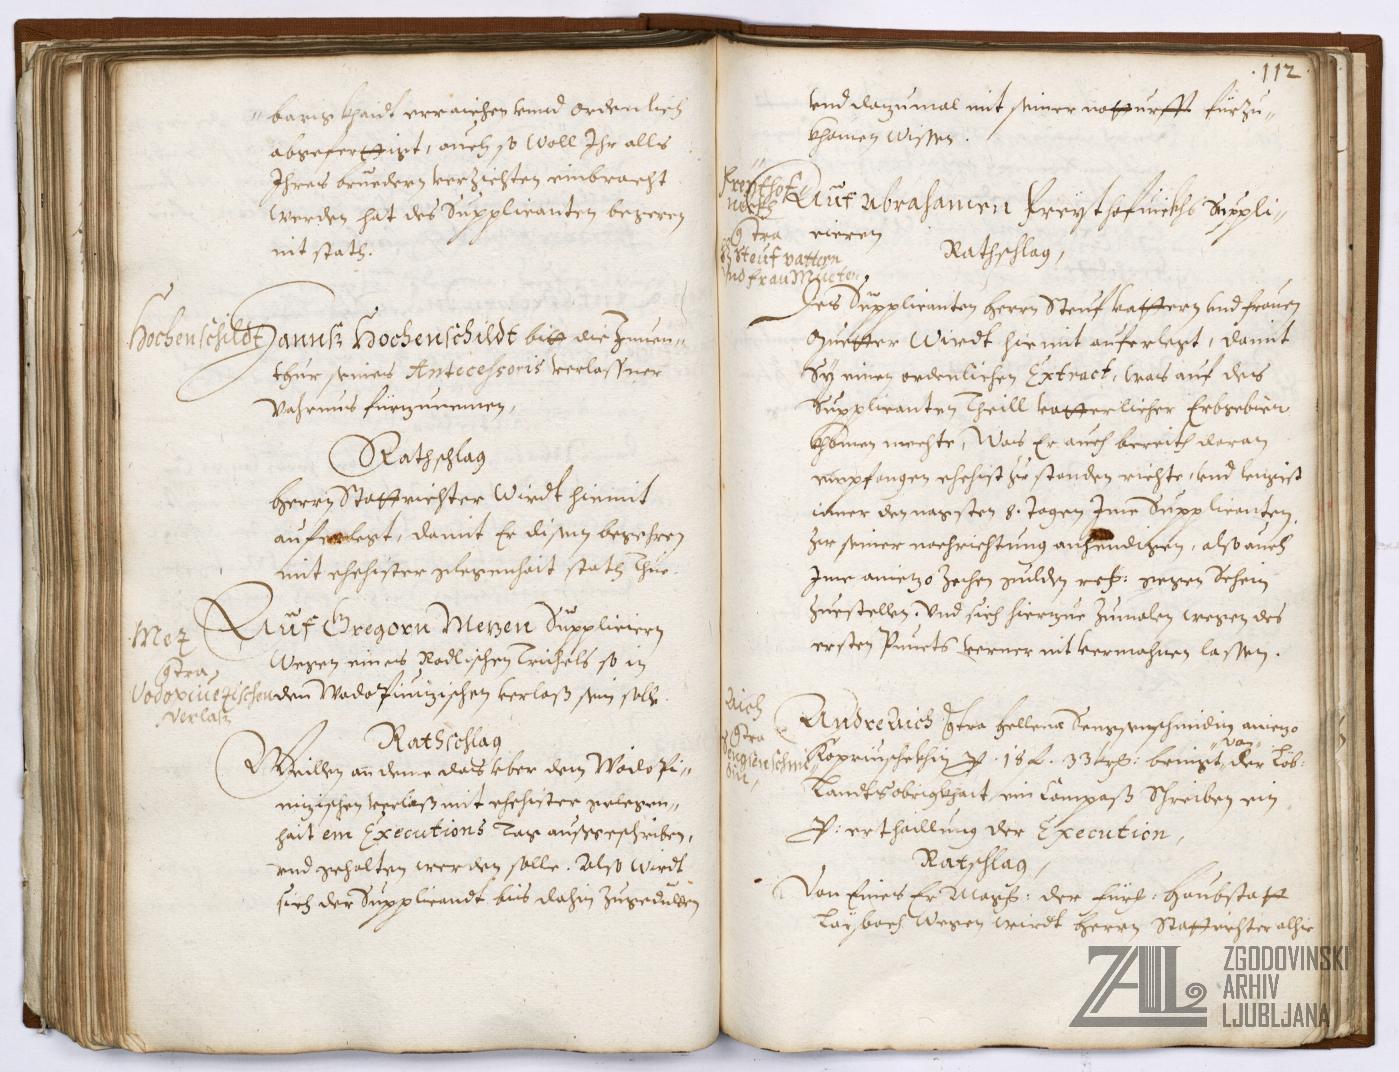 barig khaidt erraichen vnnd ordenlich
abgeferttigt, auch so woll Ihr alls
Ihres bruedern verzichten einbracht
werden hat des Supplicanten begeren
nit stath.
Hochenschildt
Hannß Hochenschildt bitt die Inuen„
thur seines Antecessoris verlassner
Vahrnus fürzunemen,
Rathschlag
Herrn Stattrichter wirdt hiemit
auferlegt, damit Er disem begehren
mit ehehister glegenhait stath Thue.
Mez
contra
Vodopiuezischen
Verlaß
Auf Gregorn Mezen Supplicieren
Wegen eines Rodlischen Trühels so in
dem Wodopiuizischen verlaß sein solle.
Rathschlag
Weillen an deme das vber den Wodopi„
uizischen verlaß mit ehehister gelegen„
hait ein Executions Tag außgeschriben,
vnd gehalten werden solle. Also wirdt
sich der Supplicandt bis dahin zugedulden
112
vnd dazumal mit seiner notturfft fürzu„
khomen wissen.
Freythof
contra
Steuf vattern
vnd frau Muetter,
Auf Abrahamen Freythofnickhs Suppli„
cieren
Rathschlag,
Des Supplicanten herrn Steuf Vattern vnd frauen
Muetter wirdt hiemit auferlegt, damit
Sy einen ordenlichen Extract, was auf des
Supplicanten Theill vatterlicher Erbsgebüer
khomen mechte, Was Er auch bereith daran
empfangen ehehist zu standen richte, vnd lengist
inner den negsten 8. Tagen Ime Supplicanten,
zu seiner nachrichtung anhendigen, also auch
Ime aniezo Zechen gulden gegen Schein
zuestellen. Vnd sich hierzue zumalen wegen des
ersten Puncts verner nit vermahnen lassen.
Aich
contra
Sengsenschmi„
din,
Andre Aich contra Hellena Sengsenschmidin aniezo
Koprinschekhin P. 18 f. 33 kr: bringt von der Löb:
Landtsobrigkhait, ein Compaß Schreiben ein
P: erthaillung der Execution,
Ratschlag,
Von Eines Er: Mag: der fürst: haubtstatt
Laybach wegen wirdt Herrn Stattrichter alhie
ZAL
ZGODOVINSKI
ARHIV
LJUBLJANA